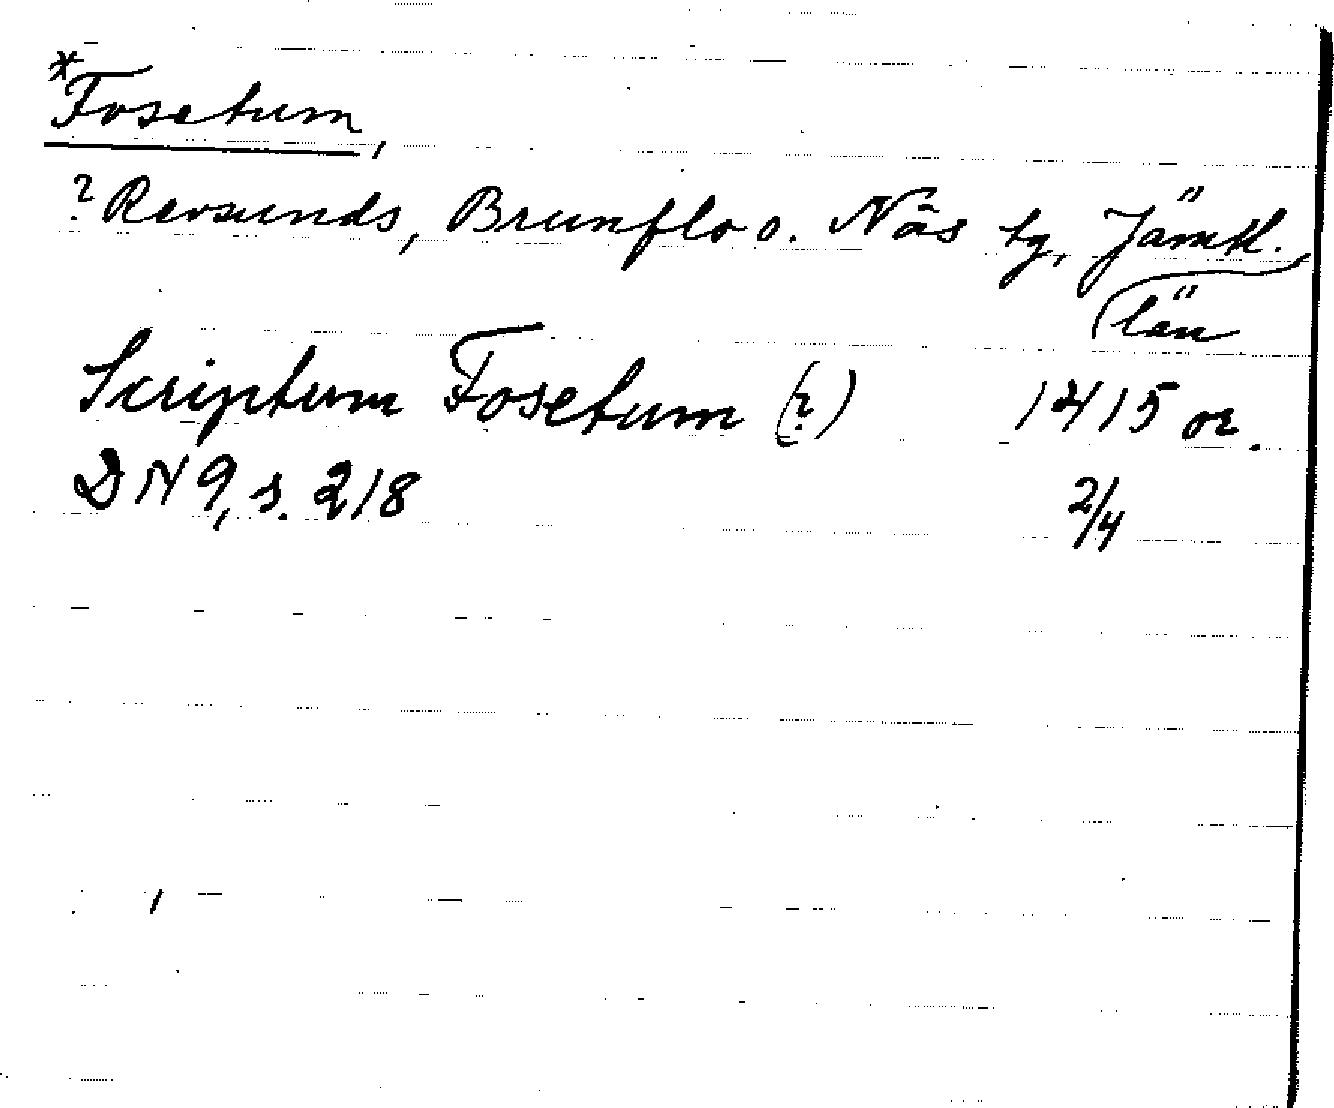 *Fosetum,
? Revsunds, Brunflo o. Näs tg, Jämtl.
län
Scriptum Fosetum (?) 1415 or.
DN 9, s. 218 2/4